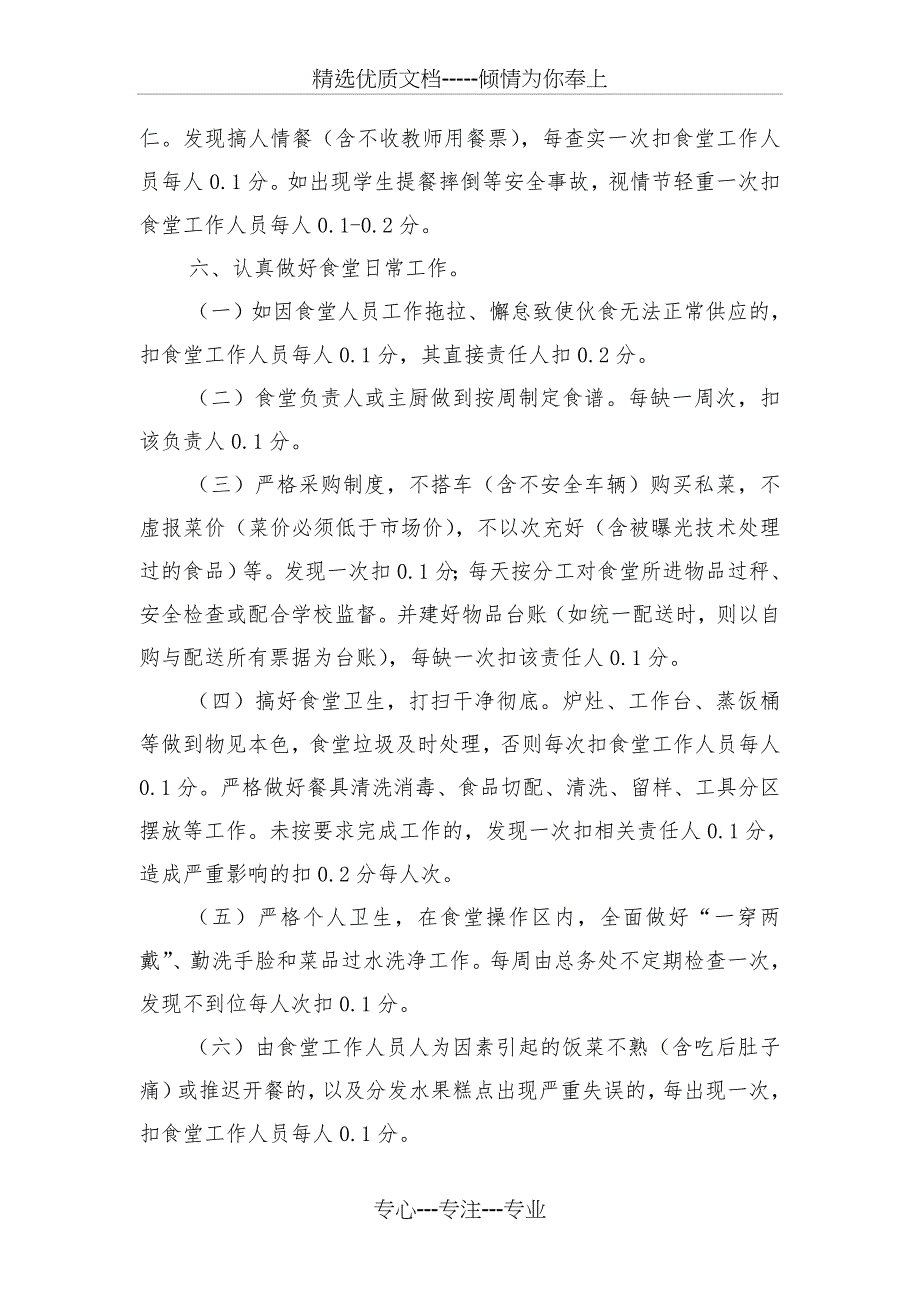 精选优质文档-----倾情为你奉上
仁。发现搞人情餐（含不收教师用餐票），每查实一次扣食堂工作人
员每人 0.1 分。如出现学生提餐摔倒等安全事故，视情节轻重一次扣
食堂工作人员每人 0.1-0.2 分。
六、认真做好食堂日常工作。
（一）如因食堂人员工作拖拉、懈怠致使伙食无法正常供应的，
扣食堂工作人员每人 0.1 分，其直接责任人扣 0.2 分。
（二）食堂负责人或主厨做到按周制定食谱。每缺一周次，扣
该负责人 0.1 分。
（三）严格采购制度，不搭车（含不安全车辆）购买私菜，不
虚报菜价（菜价必须低于市场价），不以次充好（含被曝光技术处理
过的食品）等。发现一次扣 0.1 分；每天按分工对食堂所进物品过秤、
安全检查或配合学校监督。并建好物品台账（如统一配送时，则以自
购与配送所有票据为台账），每缺一次扣该责任人 0.1 分。
（四）搞好食堂卫生，打扫干净彻底。炉灶、工作台、蒸饭桶
等做到物见本色，食堂垃圾及时处理，否则每次扣食堂工作人员每人
0.1 分。严格做好餐具清洗消毒、食品切配、清洗、留样、工具分区
摆放等工作。未按要求完成工作的，发现一次扣相关责任人 0.1 分，
造成严重影响的扣 0.2 分每人次。
（五）严格个人卫生，在食堂操作区内，全面做好“一穿两
戴”、勤洗手脸和菜品过水洗净工作。每周由总务处不定期检查一次，
发现不到位每人次扣 0.1 分。
（六）由食堂工作人员人为因素引起的饭菜不熟（含吃后肚子
痛）或推迟开餐的，以及分发水果糕点出现严重失误的，每出现一次，
扣食堂工作人员每人 0.1 分。
专心---专注---专业